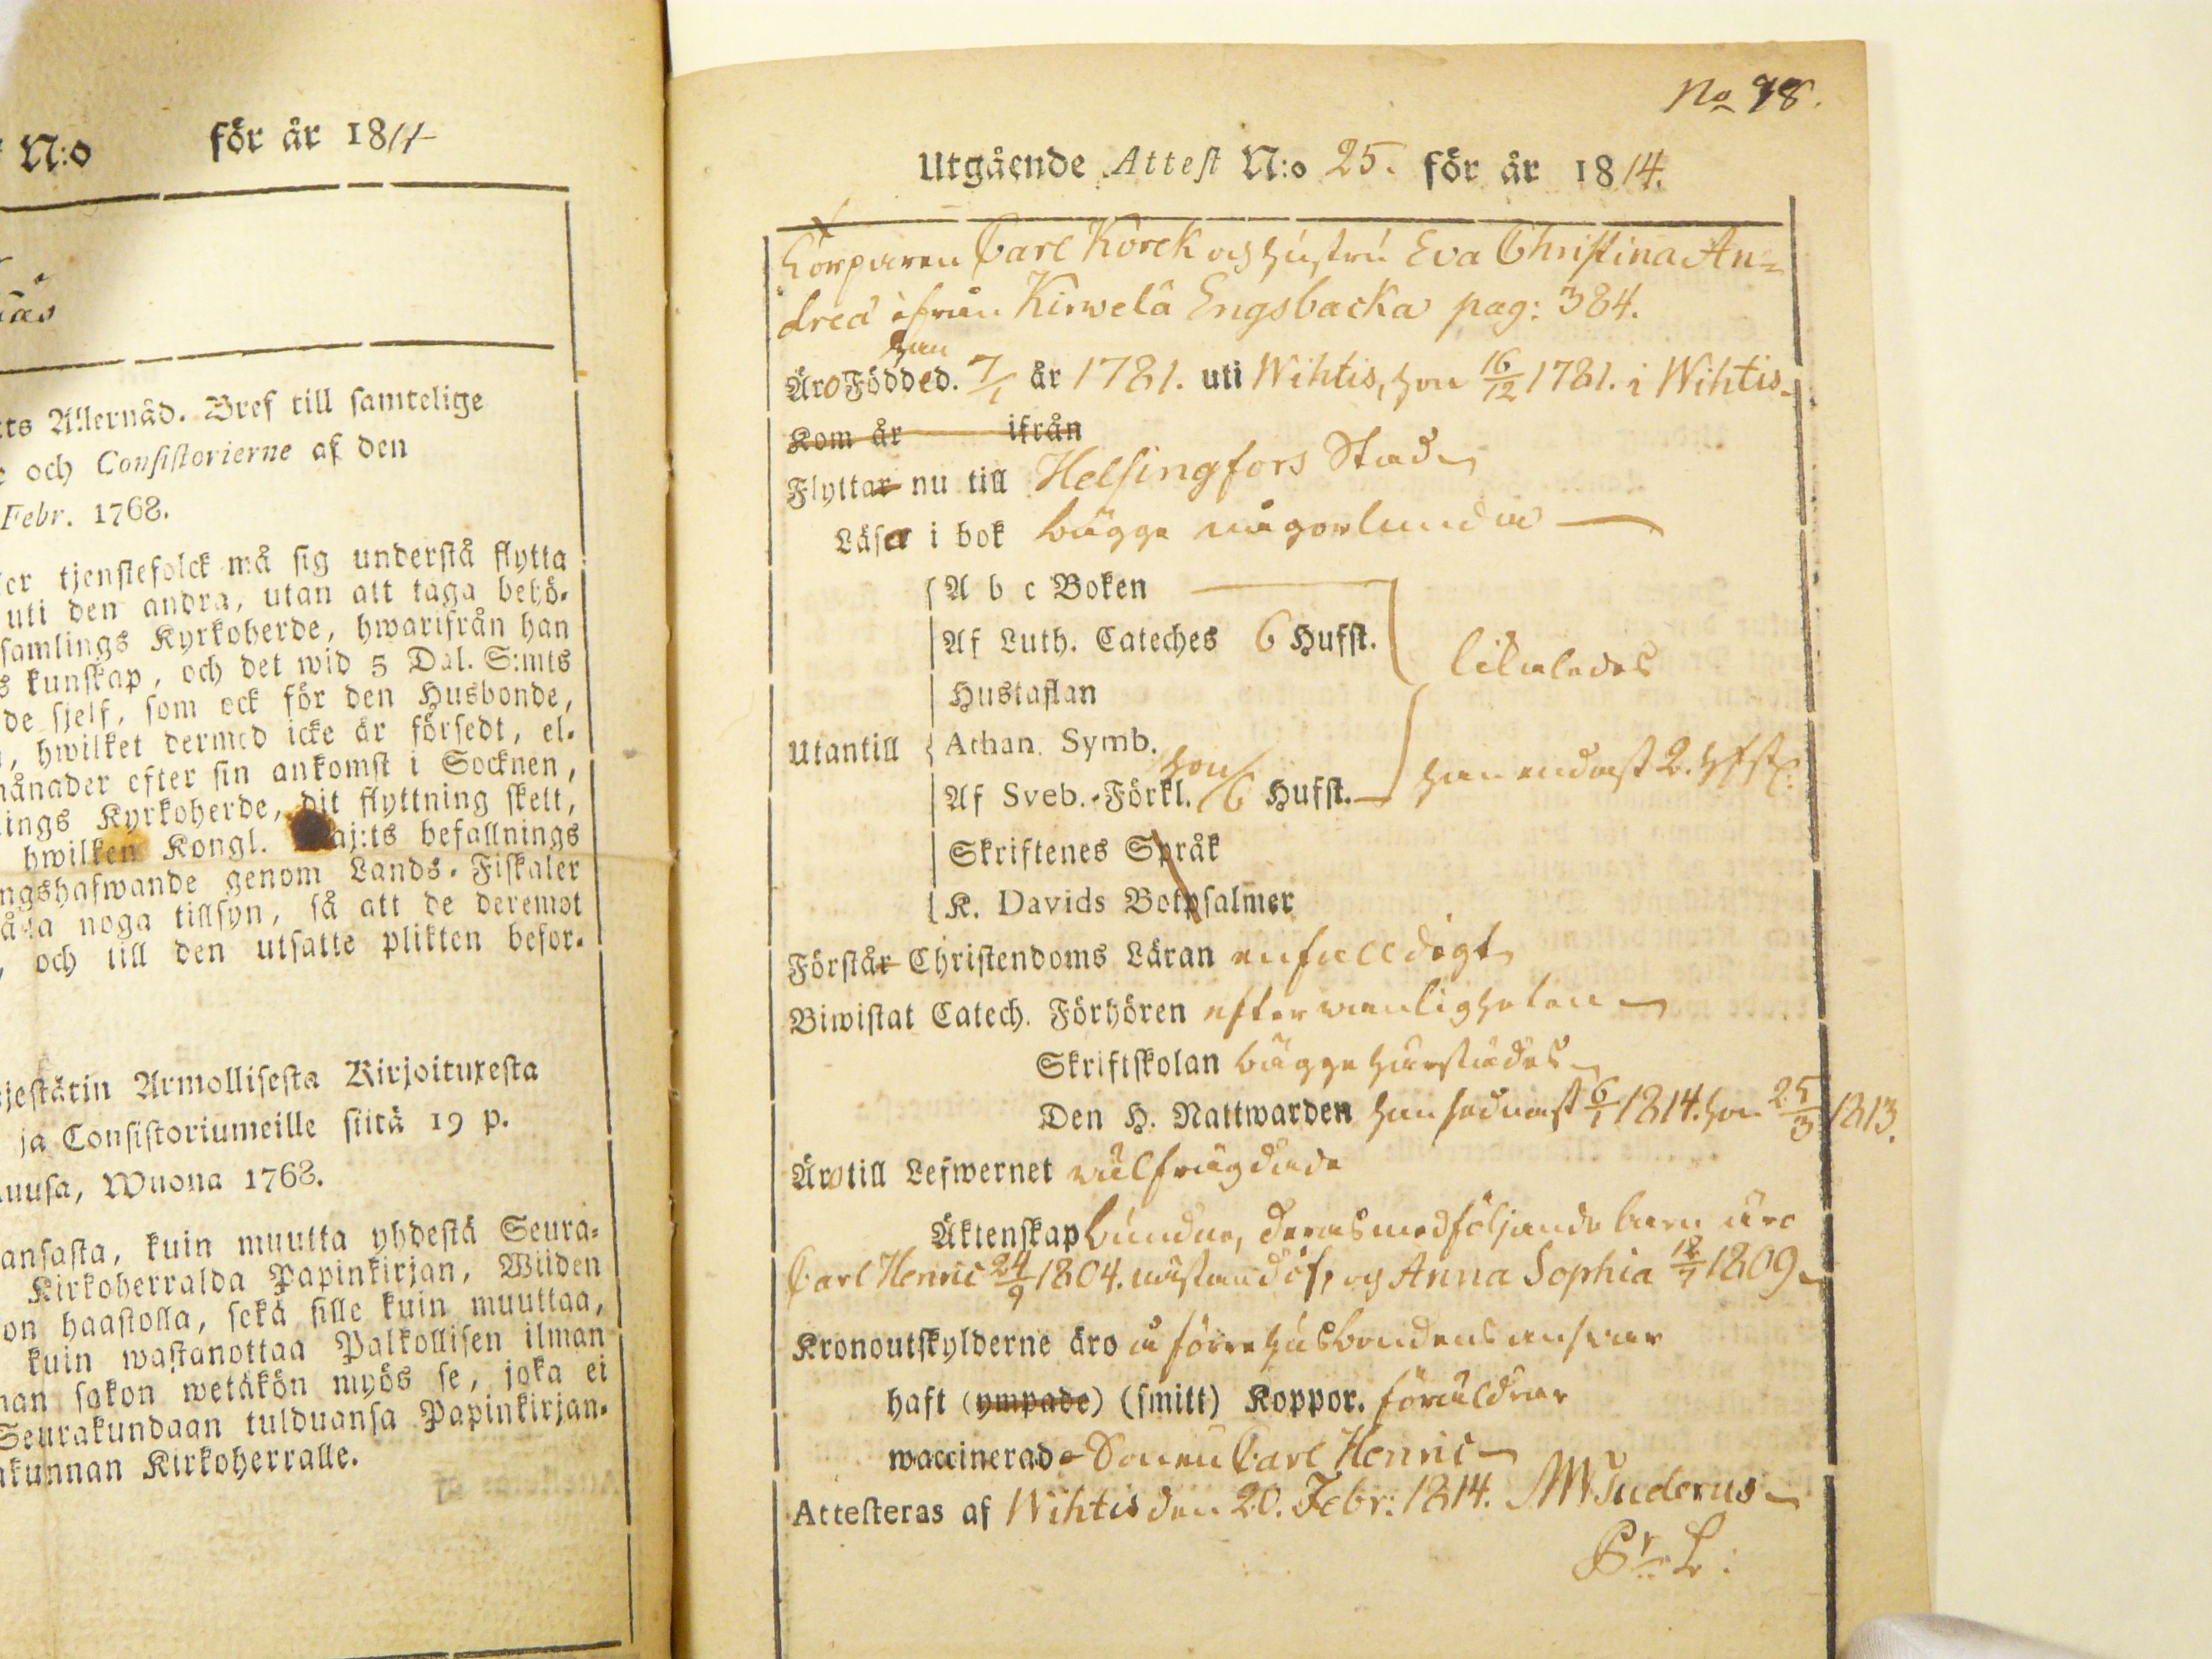 N:o för år 1814
näs
:ts Allernåd. Bref till samtelige
e och Consistorierne af den
Febr. 1768.
er tjenstefolck må sig understå flytta
uti den andra, utan att taga behö-
samlings Kyrkoherde, hwarifrån han
s kunskap, och det wid 5 Dal. S:mts
de sjelf, som ock för den Husbonde,
, hwilket dermed icke är försedt, el-
månader efter sin ankomst i Socknen,
ings Kyrkoherde, dit flyttning skett,
hwilken Kongl. Maj:ts befallnings
ngshafwande genom Lands-Fiskaler
noga tillsyn, så att de deremot
, och till den utsatte plikten befor-
jestätin Armollisesta Kirjoituxesta
ja Consistoriumeille siitä 19 p.
uusa, Wuona 1768.
ansasta, kuin muutta yhdestä Seura-
Kirkoherralda Papinkirjan, Wiiden
on haastolla, sekä sille kuin muuttaa,
kuin wastanottaa Palkollisen ilman
man sakon wetäkön myös se, joka ei
Seurakundaan tulduansa Papinkirjan-
akunnan Kirkoherralle.
No 98.
Utgående Attest N:o 25. för år 1814.
Torparen Carl Körck och hustru Eva Christina An=
dred ifrån Kirwelä Engsbacka pag: 384.
han
Äro Födde d. 7/1 år 1781. uti Wihtis, hon 16/12 1781. i Wihtis
Kom år ifrån
Flyttar nu till Helsingfors Stad
Läsa i bok bägge någorlunda
A b c Boken
Af Luth. Cateches 6 Hufst. likaledes
Hustaflan
Utantill Athan. Symb.
hon
Af Sveb. Förkl. 6 Hufst. han endast 2. Hfst:
Skriftenes Språk
K. Davids Botpsalmer
Förstår Christendoms Läran enfalldigt
Biwistat Catech. Förhören efter wanligheten
Skriftskolan bägge härstädes
Den H. Nattwarden han sednast 6/1 1814. hon 25/3 1813.
Äro till Lefwernet wälfrägdade
Äktenskap bundne, deras medföljande barn äro
Carl Henric 24/9 1804. och Anna Sophia 18/7 1809
Kronoutskylderne äro å förre husbondens answar
haft (ympade) (smitt) Koppor. föräldrar
waccinerad Sonen Carl Henric
Attesteras af Wihtis den 20. Febr: 1814. Suderus